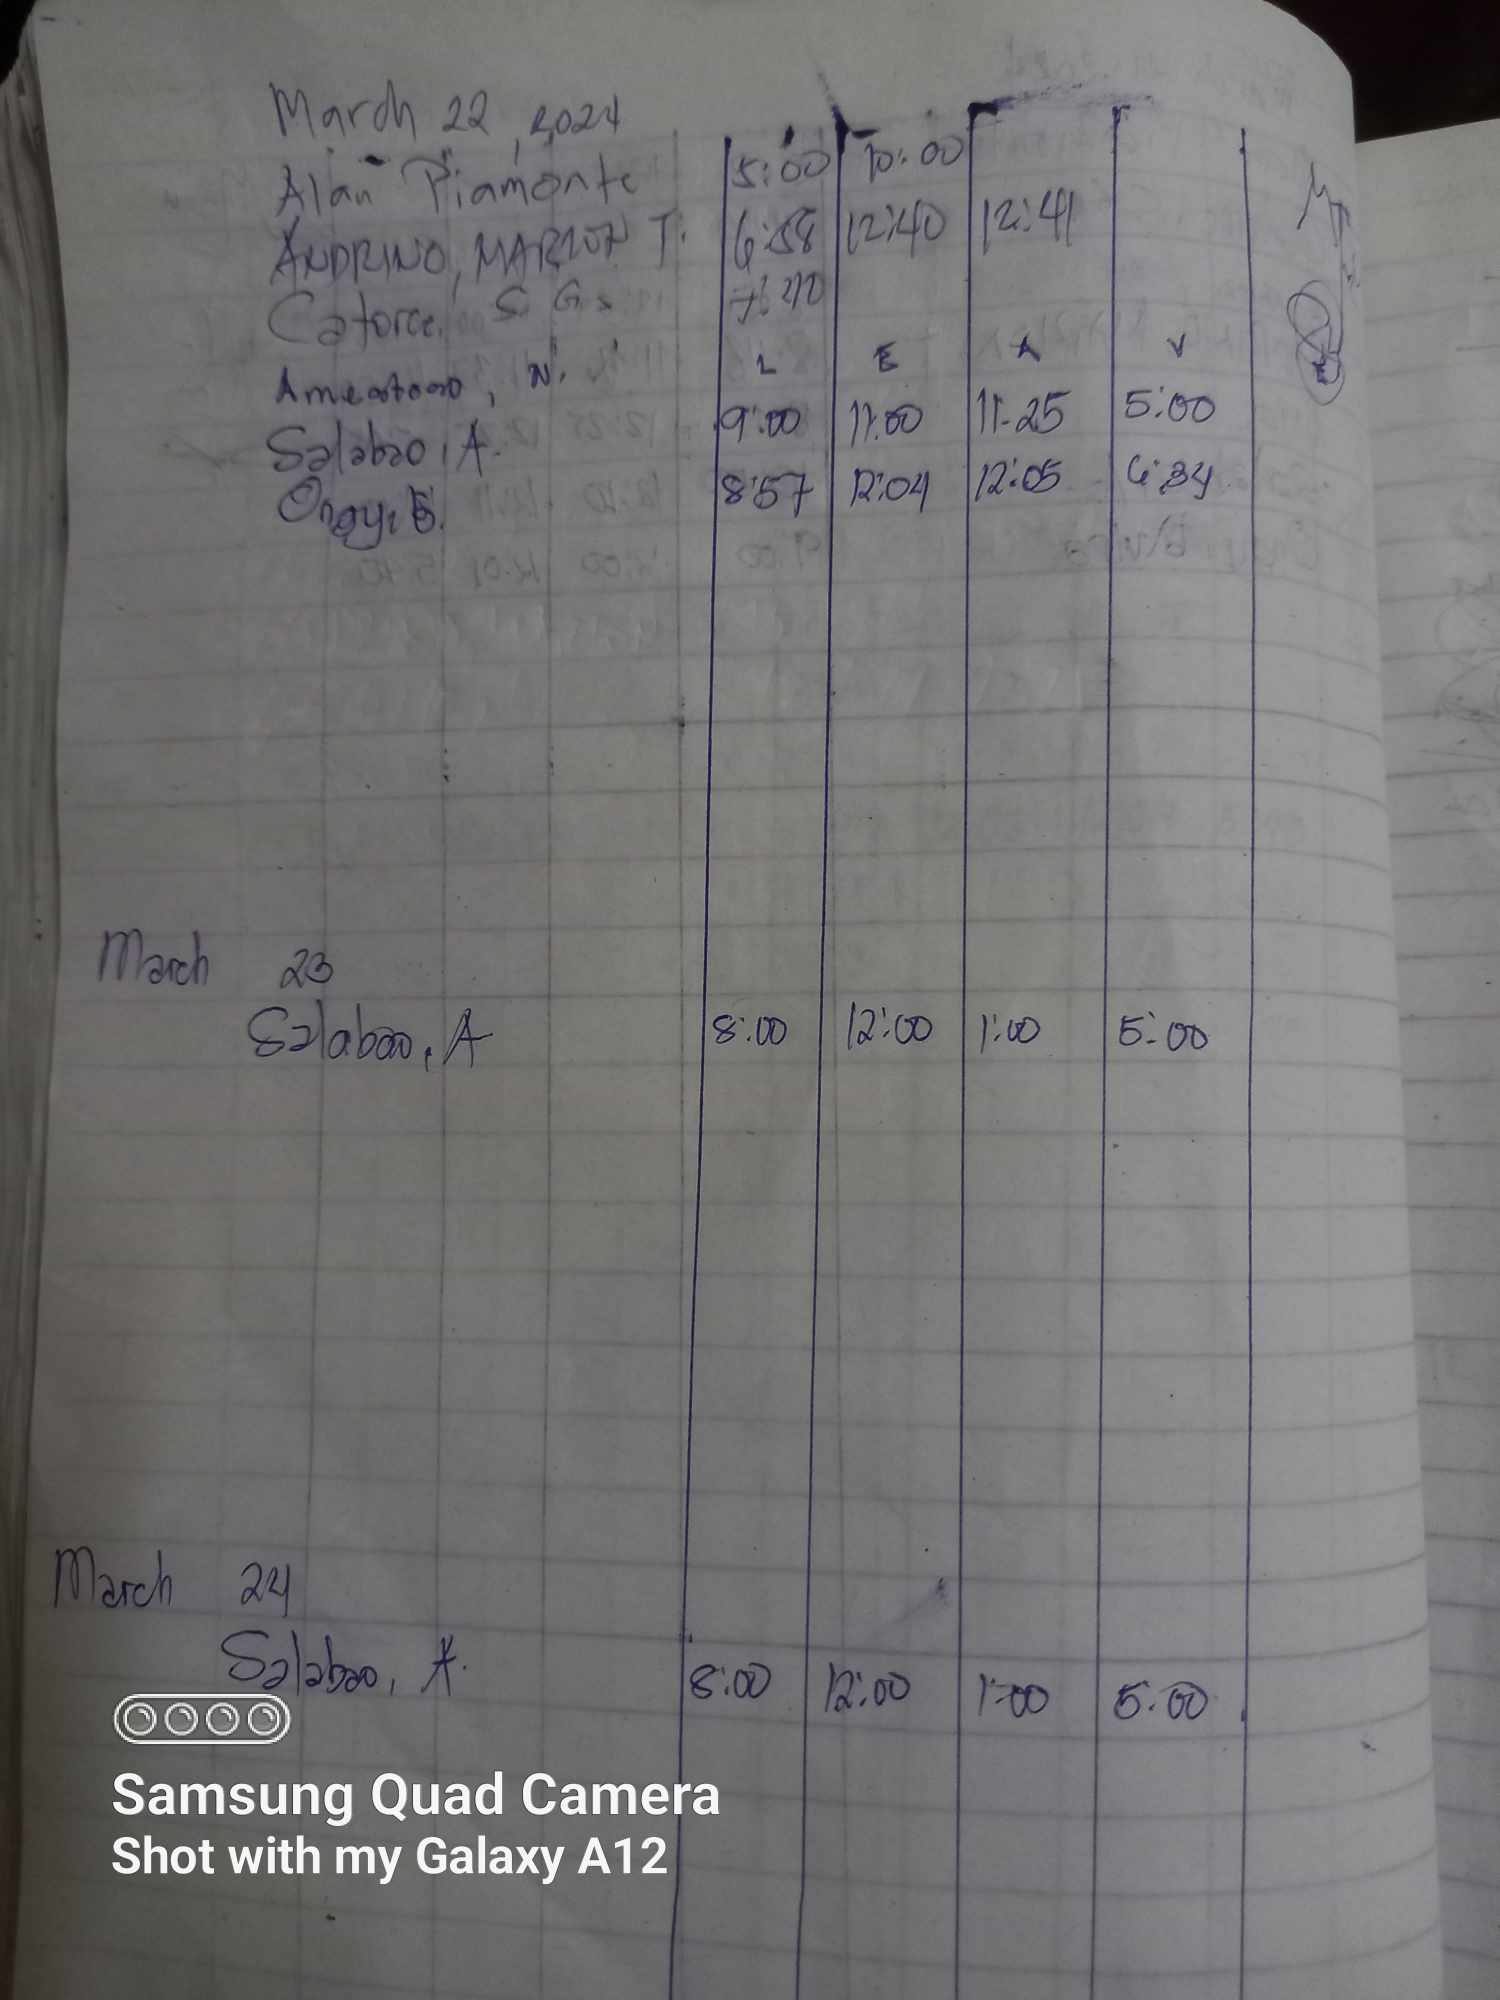 March 22, 2024
Alan Piamonte 5:00 10:00
ANDRINO, MARLON T. 6:58 12:40 12:41
Catorce, S. G.
N. L E A V
Salabao, A. 9:00 11:00 11:25 5:00
Ongy, 8:57 12:04 12:05 6:34
March 23
Salabao, A 8:00 12:00 1:00 5:00
March 24
Salabao, A. 8:00 12:00 1:00 5:00
Samsung Quad Camera
Shot with my Galaxy A12